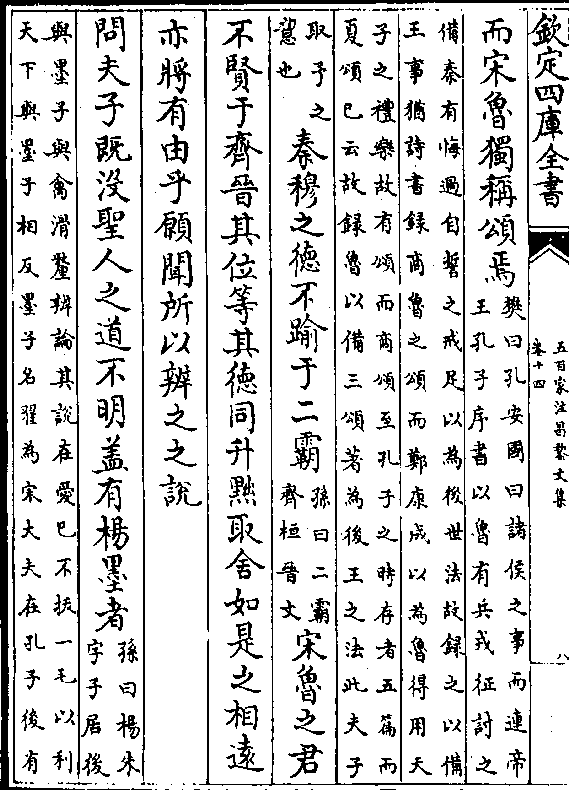 欽定四庫全書
五百家注昌黎文集
卷十四
八
而宋魯獨稱頌焉
樊曰孔安國曰諸侯之事而連帝
王孔子序書以魯有兵戎征討之
備秦有悔過自誓之戒足以為後世法故録之以備
王事猶詩書録商魯之頌而鄭康成以為魯得用天
子之禮樂故有頌而商頌至孔子之時存者五篇而
夏頌已云故録魯以備三頌著為後王之法此夫子
取予之
意也
秦穆之德不踰于二霸
孫曰二霸
齊桓晉文
宋魯之君
不賢于齊晉其位等其德同升黜取舍如是之相遠
亦將有由乎願聞所以辨之之說
問夫子既沒聖人之道不明盖有楊墨者
孫曰楊朱
字子居後
與墨子與禽滑釐辨論其說在愛已不拔一毛以利
天下與墨子相反墨子名翟為宋大夫在孔子後有